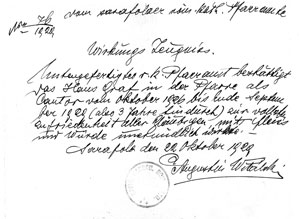 Nro 76/1929
vom sarafolaer röm. kath. Pfarramte
Wirkungs Zeugnis.
Untergefertigtes r. k. Pfarramt bestättigt
das Hans Graf in der Pfarre als
Cantor vom Oktober 1926 bis Ende Septem-
ber 1929 (also 3 Jahre hindurch) zur vollsten
Zufriedenheit aller Gläubigen mit Fleiss
und Würde
Sarafola den 22 Oktober 1929
Augustin